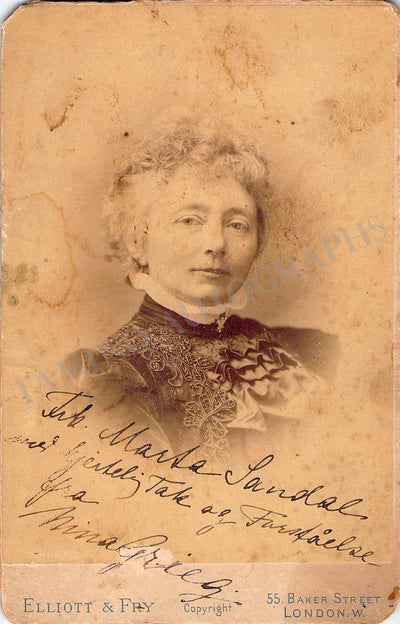 Frk. Marta Sandal
med hjertelig Tak og Forståelse
fra
Nina Grieg.
ELLIOTT & FRY
Copyright
55, BAKER STREET
LONDON. W.
TAMINO AUTOGRAPHS